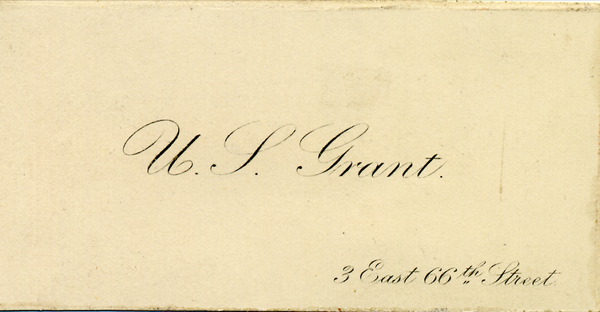 U. S. Grant.
3 East 66th Street.